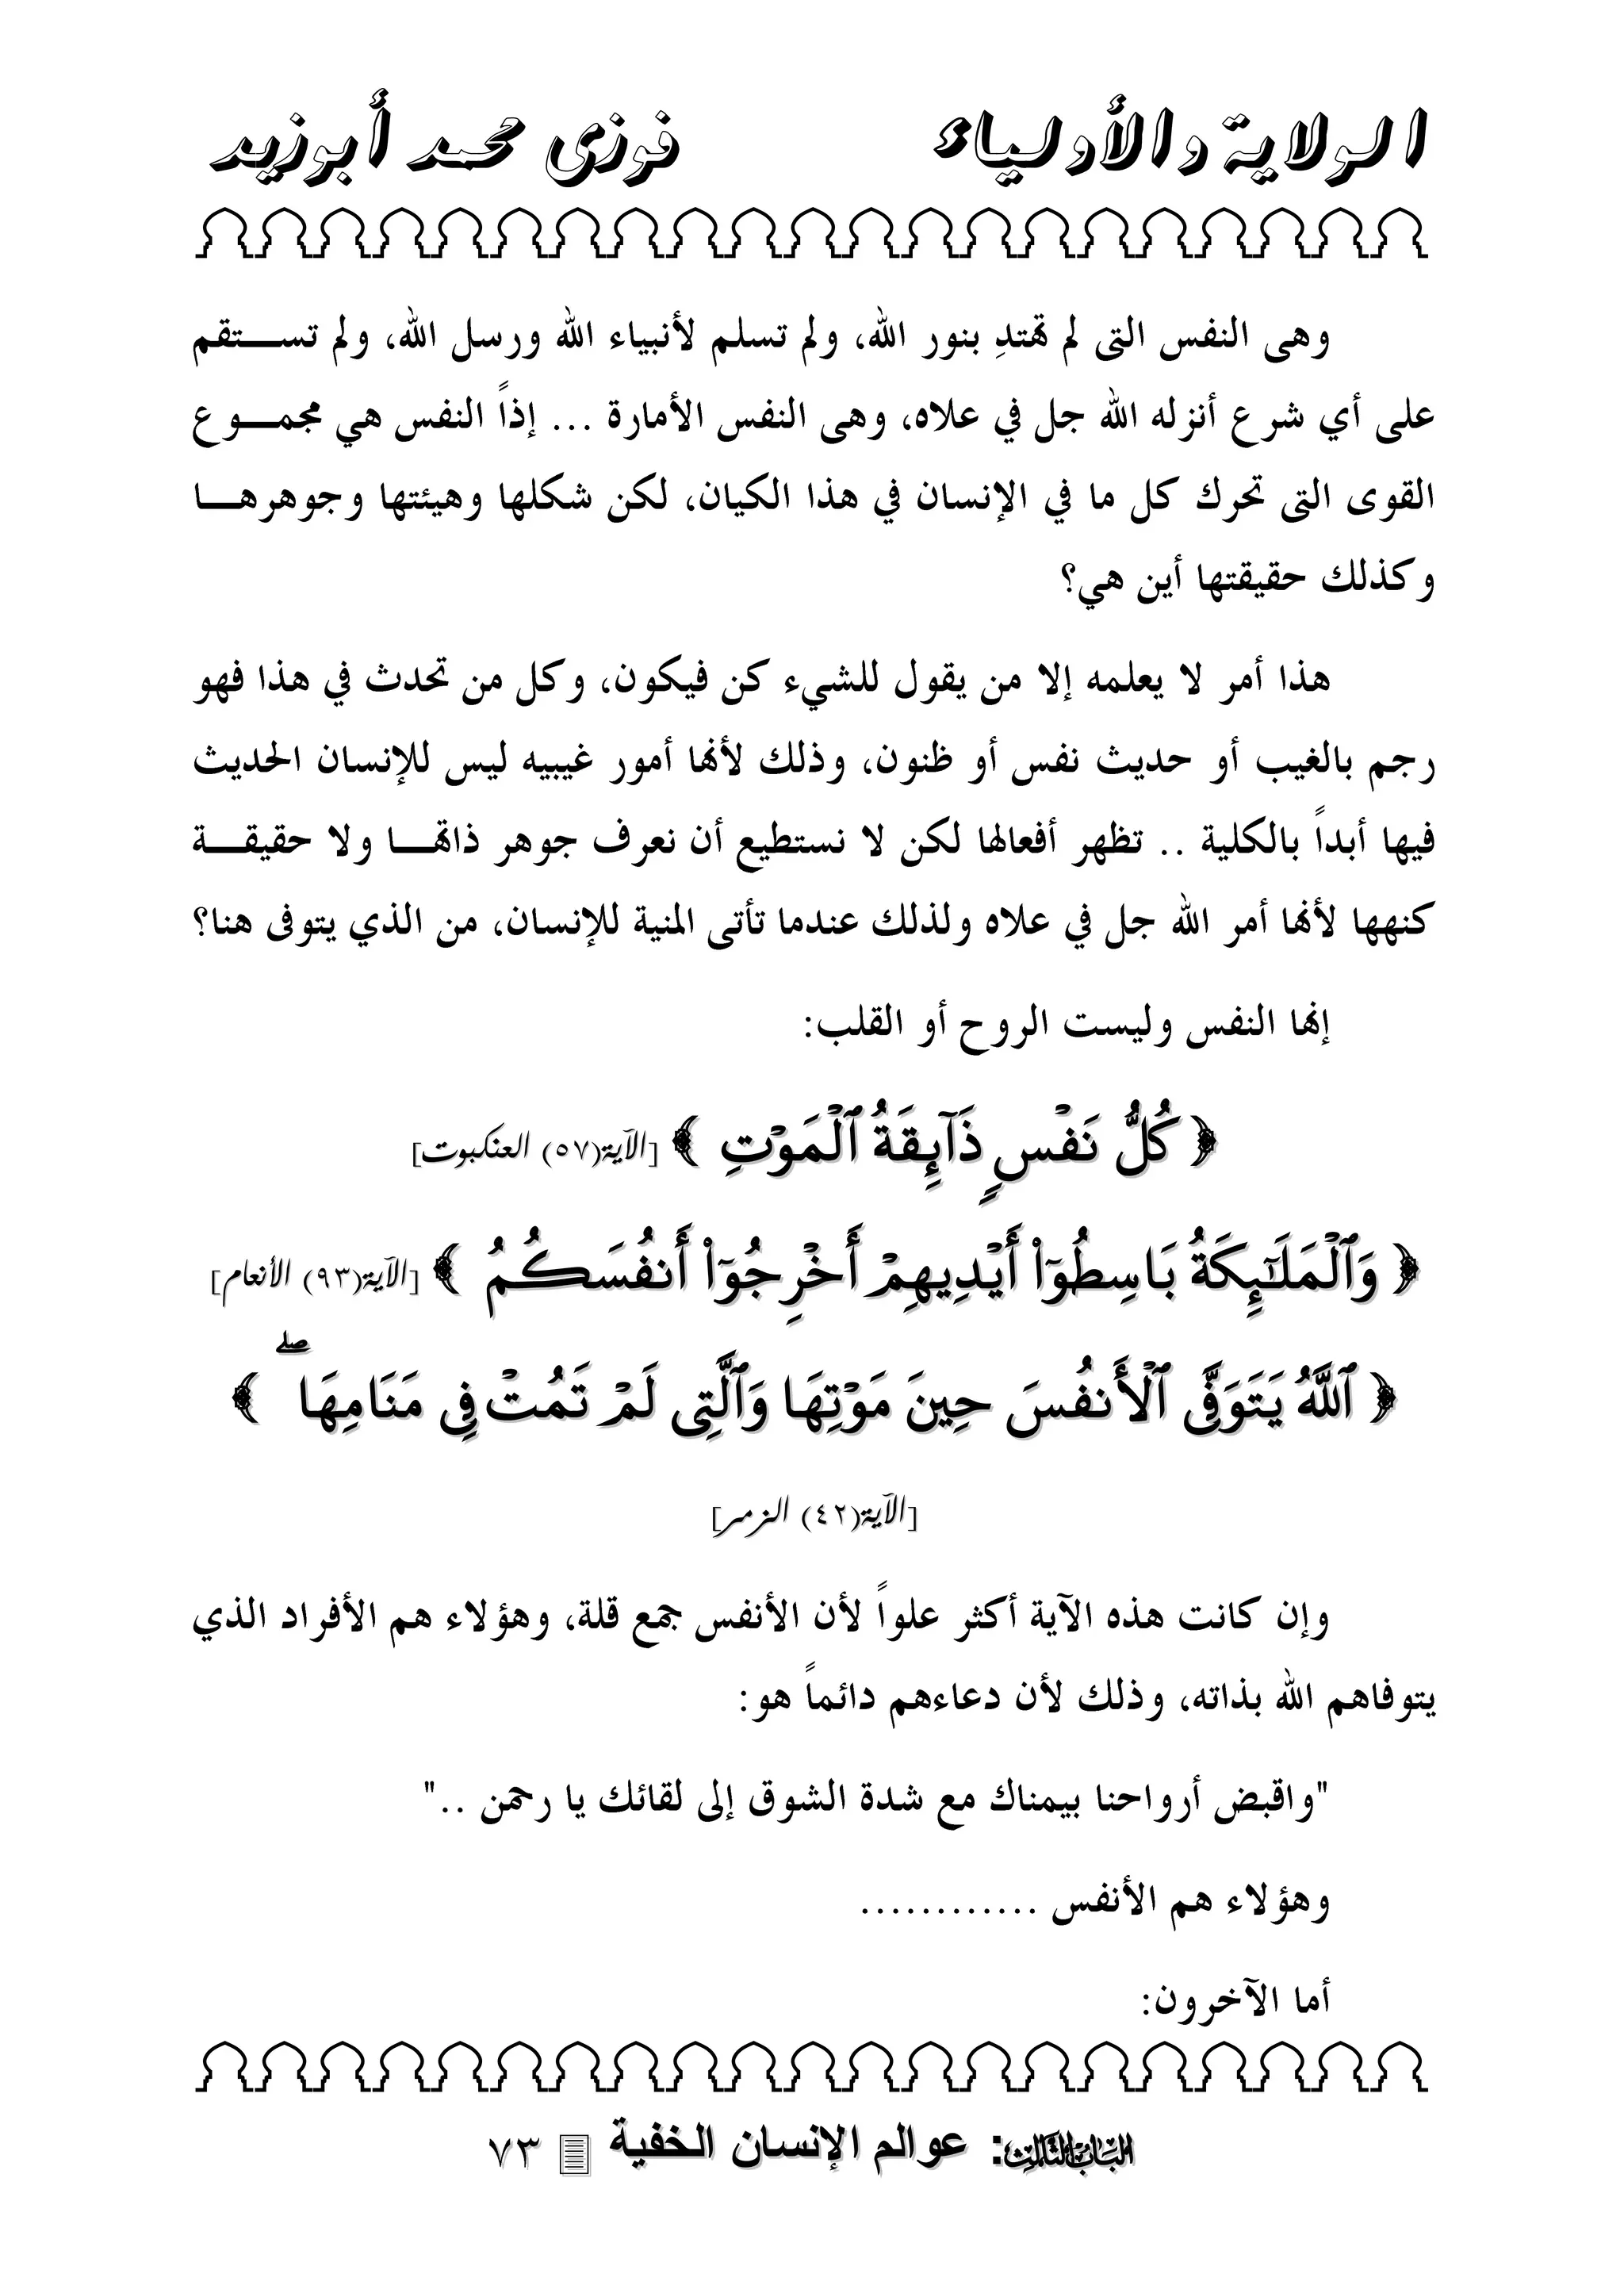 الولاية والأولياء فوزى محمد أبوزيد
وهى النفس التى لم تهتدِ بنور الله، ولم تسلم لأنبياء الله ورسل الله، ولم تستقم
على أي شرع أنزله الله جل في علاه، وهى النفس الأمارة ... إذاً النفس هي مجموع
القوى التى تحرك كل ما في الإنسان في هذا الكيان، لكن شكلها وهيئتها وجوهرها
وكذلك حقيقتها أين هي؟
هذا أمر لا يعلمه إلا من يقول للشيء كن فيكون، وكل من تحدث في هذا فهو
رجم بالغيب أو حديث نفس أو ظنون، وذلك لأنها أمور غيبيه ليس للإنسان الحديث
فيها أبداً بالكلية .. تظهر أفعالها لكن لا نستطيع أن نعرف جوهر ذاتها ولا حقيقة
كنهها لأنها أمر الله جل في علاه ولذلك عندما تأتى المنية للإنسان، من الذي يتوفى هنا؟
إنها النفس وليست الروح أو القلب:
﴿ كُلُّ نَفۡسٍ ذَآئِقَةُ ٱلۡمَوۡتِ ﴾ [الآية(٥٧) العنكبوت]
﴿ وَٱلۡمَلَـٰٓئِكَةُ بَاسِطُوٓاْ أَيۡدِيهِمۡ أَخۡرِجُوٓاْ أَنفُسَكُمُ ﴾ [الآية(٩٣) الأنعام]
﴿ ٱللَّهُ يَتَوَفَّى ٱلۡأَنفُسَ حِينَ مَوۡتِهَا وَٱلَّتِى لَمۡ تَمُتۡ فِى مَنَامِهَاۖ ﴾
[الآية(٤٢) الزمر]
وإن كانت هذه الآية أكثر علواً لأن الأنفس جمع قلة، وهؤلاء هم الأفراد الذي
يتوفاهم الله بذاته، وذلك لأن دعاءهم دائماً هو:
"واقبض أرواحنا بيمناك مع شدة الشوق إلى لقائك يا رحمن .."
وهؤلاء هم الأنفس ............
أما الآخرون:
الباب الثالث: عوالم الإنسان الخفية ٧٣